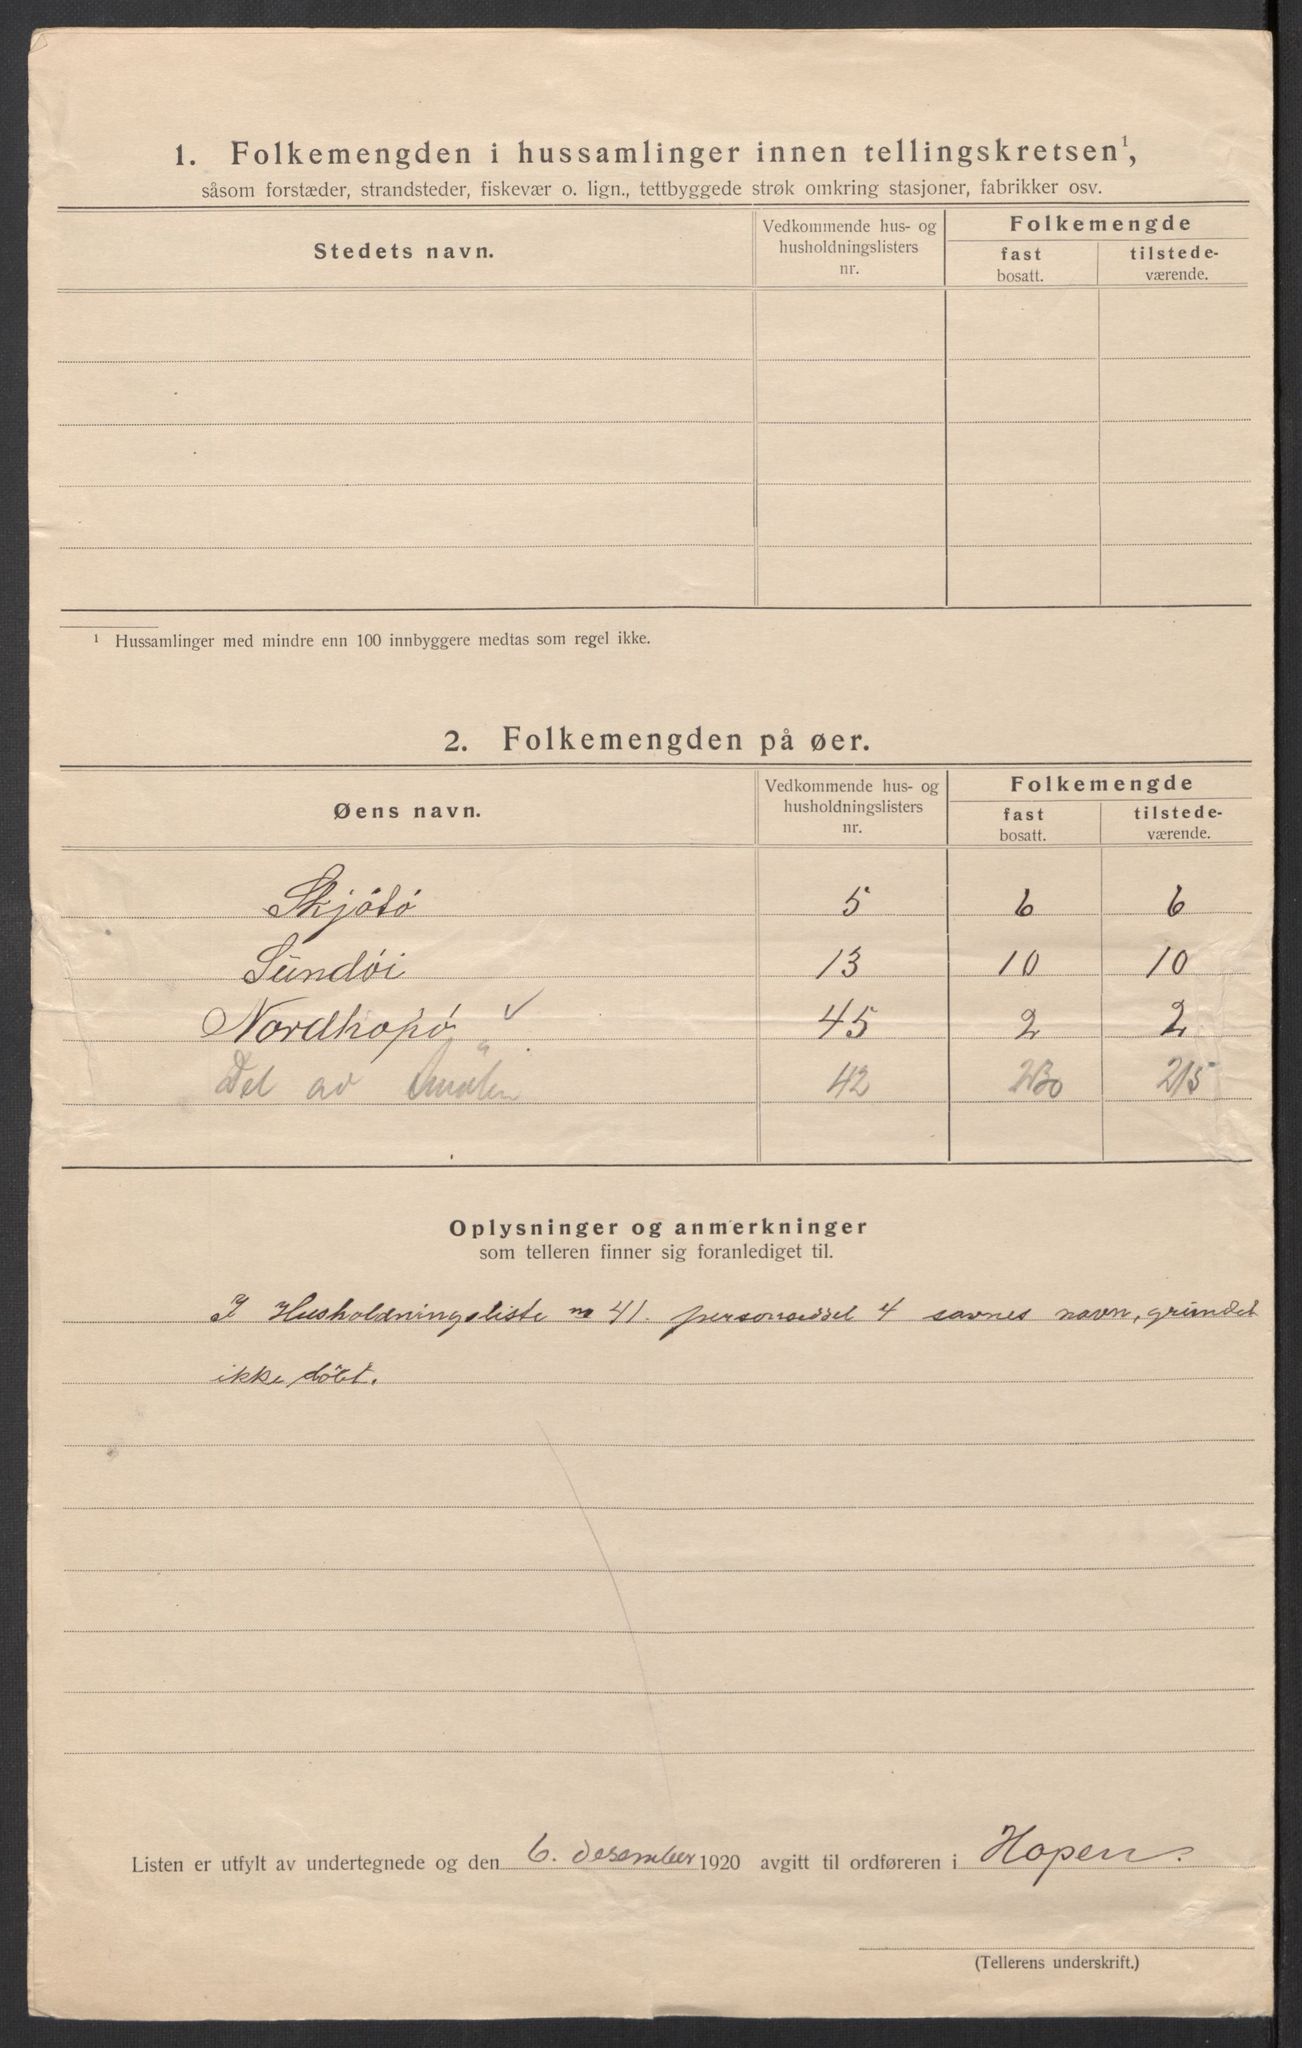 1. Folkemengden i hussamlinger innen tellingskretsen¹,
såsom forstæder, strandsteder, fiskevær o. lign., tettbyggede strøk omkring stasjoner, fabrikker osv.
Stedets navn.
Vedkommende hus- og
husholdningslisters
nr.
Folkemengde
fast
bosatt.
tilstede-
værende.
¹ Hussamlinger med mindre enn 100 innbyggere medtas som regel ikke.
2. Folkemengden på øer.
Øens navn.
Vedkommende hus- og
husholdningslisters
nr.
Folkemengde
fast
bosatt.
tilstede-
værende.
5 6 6
Sundøi 13 10 10
Nordhopø ✓ 45 2 2
Del av Smølen 42 230 215
Oplysninger og anmerkninger
som telleren finner sig foranlediget til.
I Husholdningsliste no 41. personseddel 4 savnes navn, grundet
ikke döbt.
Listen er utfylt av undertegnede og den 6. desember 1920 avgitt til ordføreren i Hopen.
(Tellerens underskrift.)